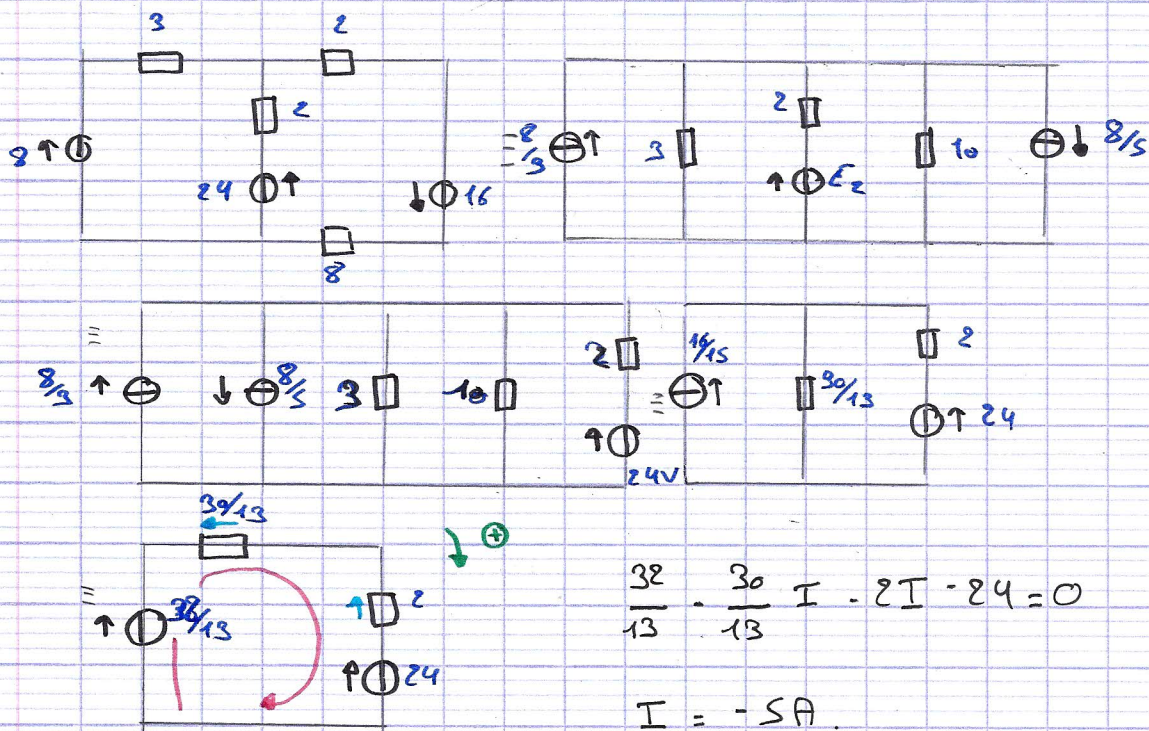 3 2
8 2 24 16
8
≡ 8/3 3 2 E₂ 10 8/5
= 8/3 8/5 3 10 2 24V
= 16/15 30/13 2 24
= 30/13 32/13 2 24
⊕
32/13 - 30/13 I - 2I - 24 = 0
I = -5A.